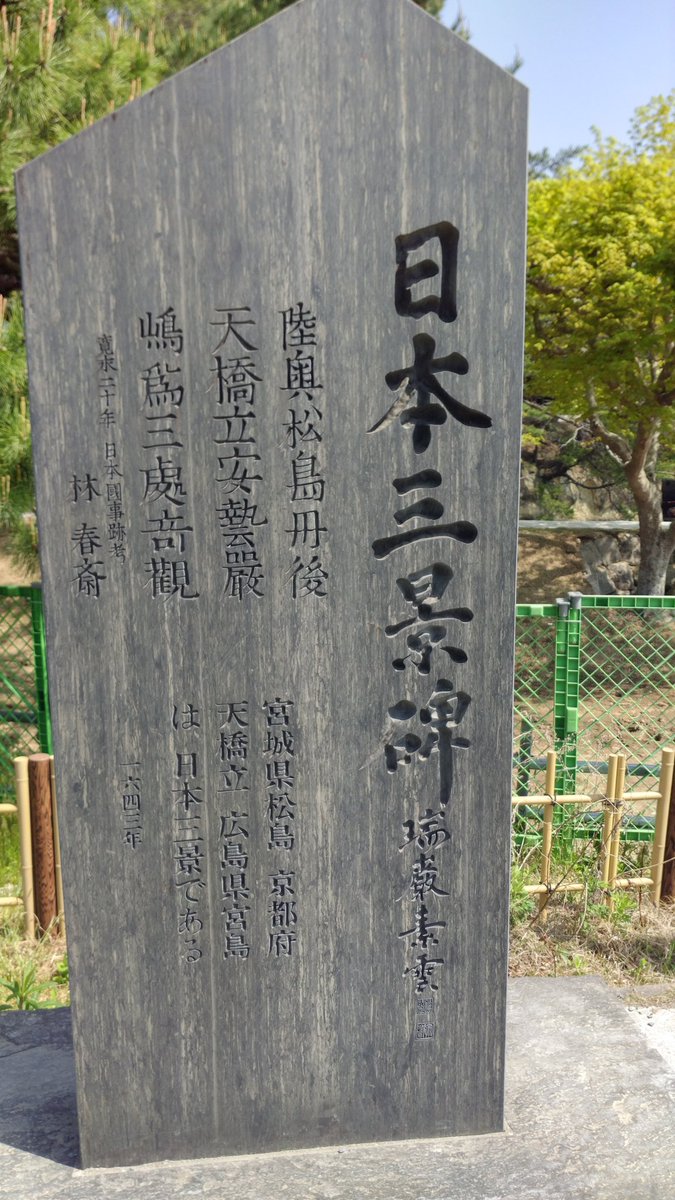 日本三景碑
瑞巌素雲
陸奥松島丹後
天橋立安藝嚴
嶋爲三處竒觀
寛永二十年 日本國事跡考
林春斎
宮城県松島 京都府
天橋立 広島県宮島
は、日本三景である
一六四三年